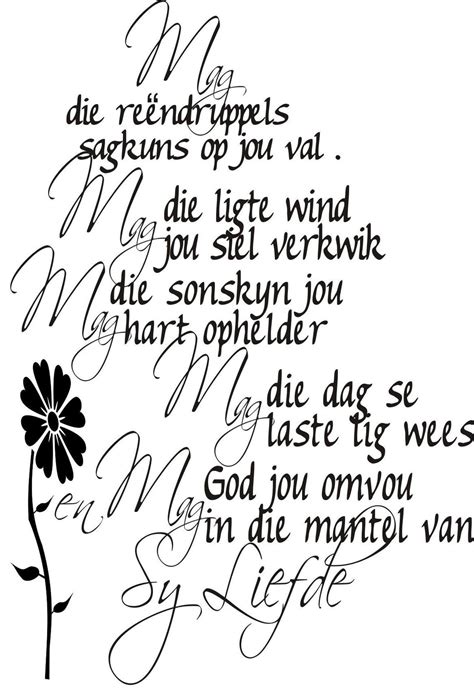 Mag
die reëndruppels
sagkuns op jou val .
Mag die ligte wind
jou siel verkwik
Mag die sonskyn jou
hart ophelder
Mag die dag se
laste lig wees
en Mag God jou omvou
in die mantel van
Sy Liefde